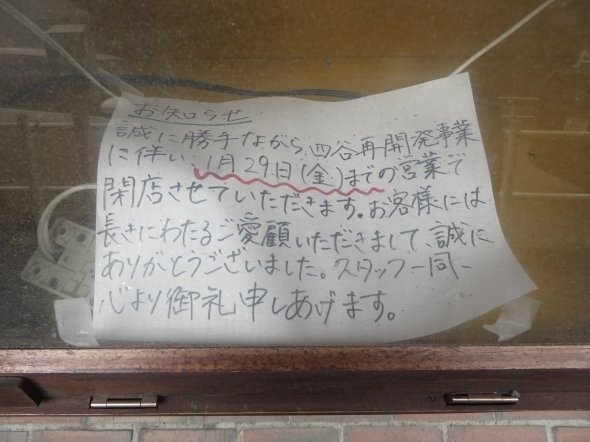 お知らせ
誠に勝手ながら、四谷再開発事業
に伴い、1月29日(金)までの営業で
閉店させていただきます。お客様には
長きにわたるご愛顧いただきまして、誠に
ありがとうございました。スタッフ一同一
心より御礼申しあげます。